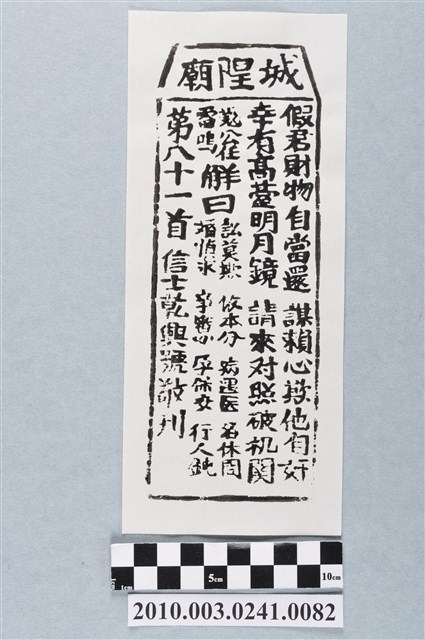 城隍廟
假君財物自當還 謀賴心欺他自奸
幸有高臺明月鏡 請來对照破机関
雷鳴
解曰
訟莫欺 依本分 医 名休問
婚慎求 孕保安 行人鈍
第八十一首 信士乾興號敬刊
1cm 5cm 10cm
2010.003.0241.0082